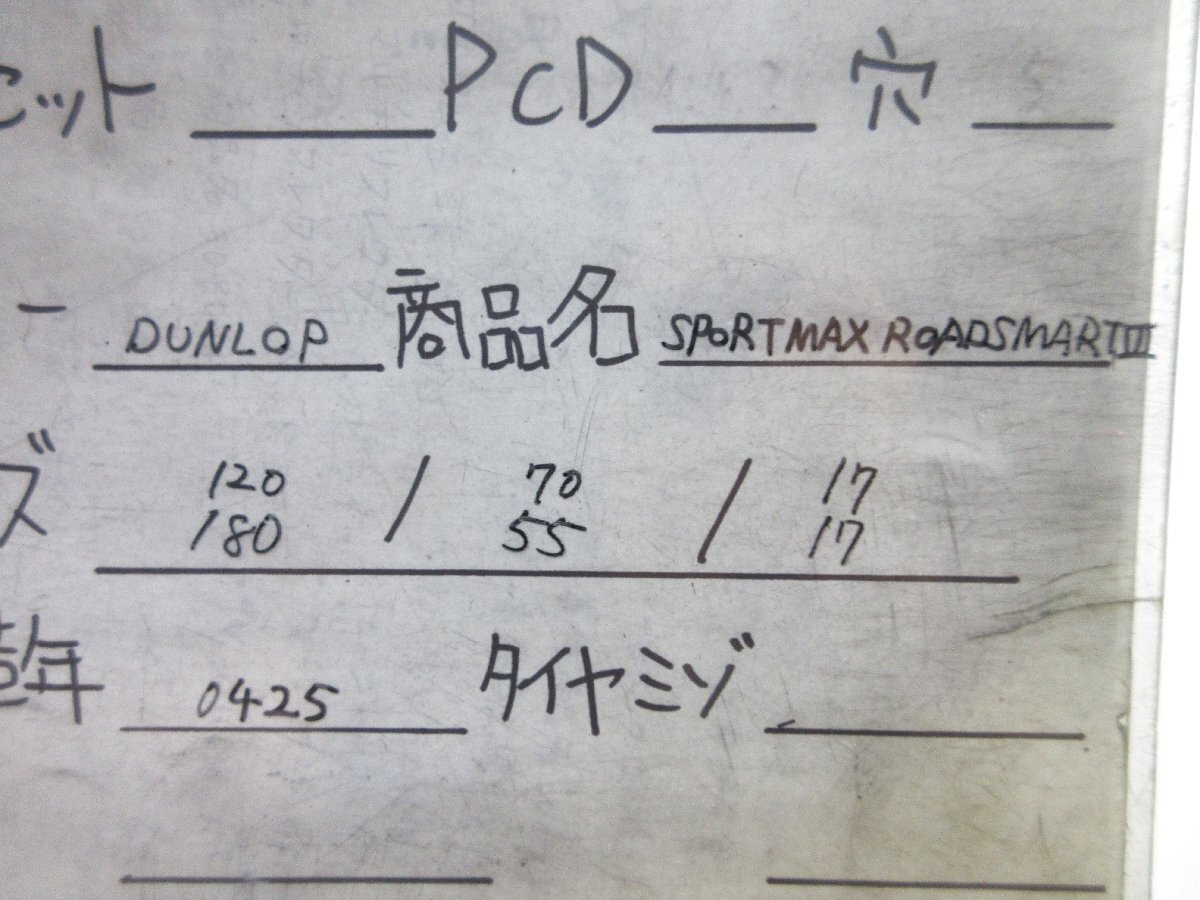 セット PCD 穴
ー DUNLOP 商品名 SPORTMAX ROADSMARTIII
ズ 120 / 70 / 17
180 55 17
造年 0425 タイヤミゾ